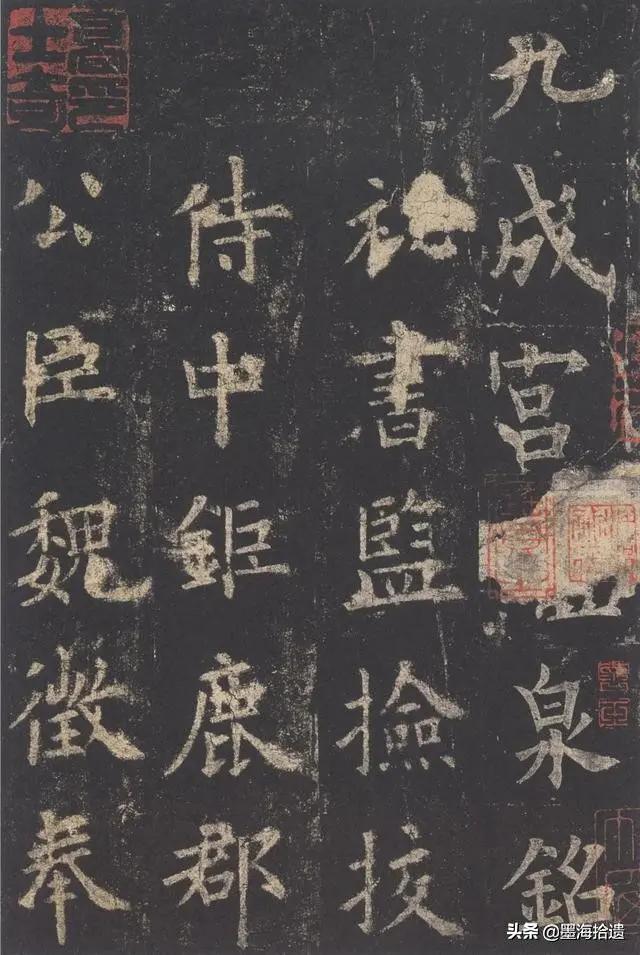 九成宮泉銘
祕書監撿挍
侍中鉅鹿郡
公臣魏徵奉
头条 @墨海拾遗